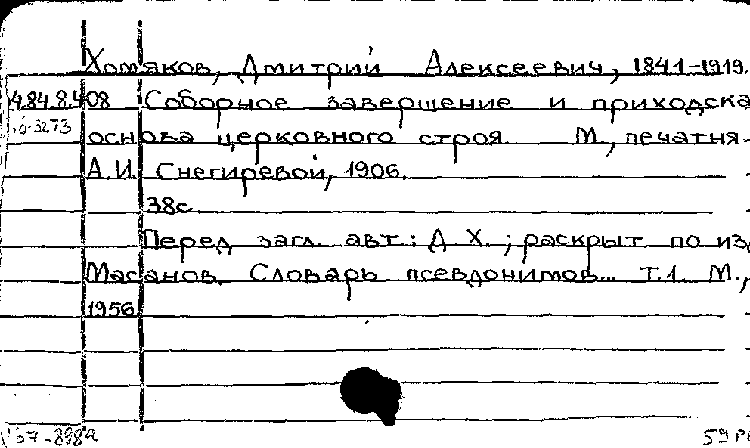 Хомяков, Дмитрий Алексеевич, 1841-1919.
4.84.8.408 Соборное завершение и приходска
основа церковного строя. М., печатня
А.И. Снегиревой, 1906.
38с.
Перед загл. авт.: Д.Х.; раскрыт по изд
Масанов. Словарь псевдонимов... т.1. М.,
1956